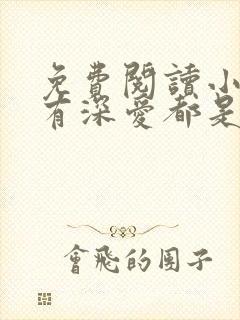 免費閱讀小
有深愛都是
會飛的團子